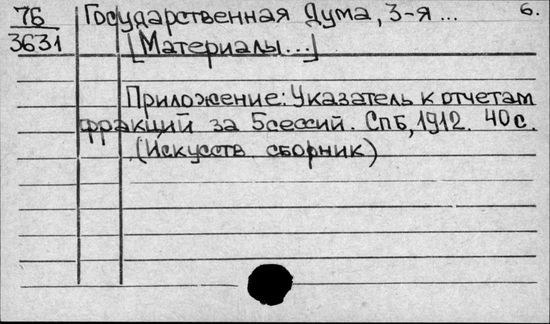 76 Государственная Дума, 3-я ... 6.
3631 [Материалы...]
Приложение: Указатель к отчетам
фракций за 5сессий. СПБ, 1912. 40 с.
(Искусств. сборник)